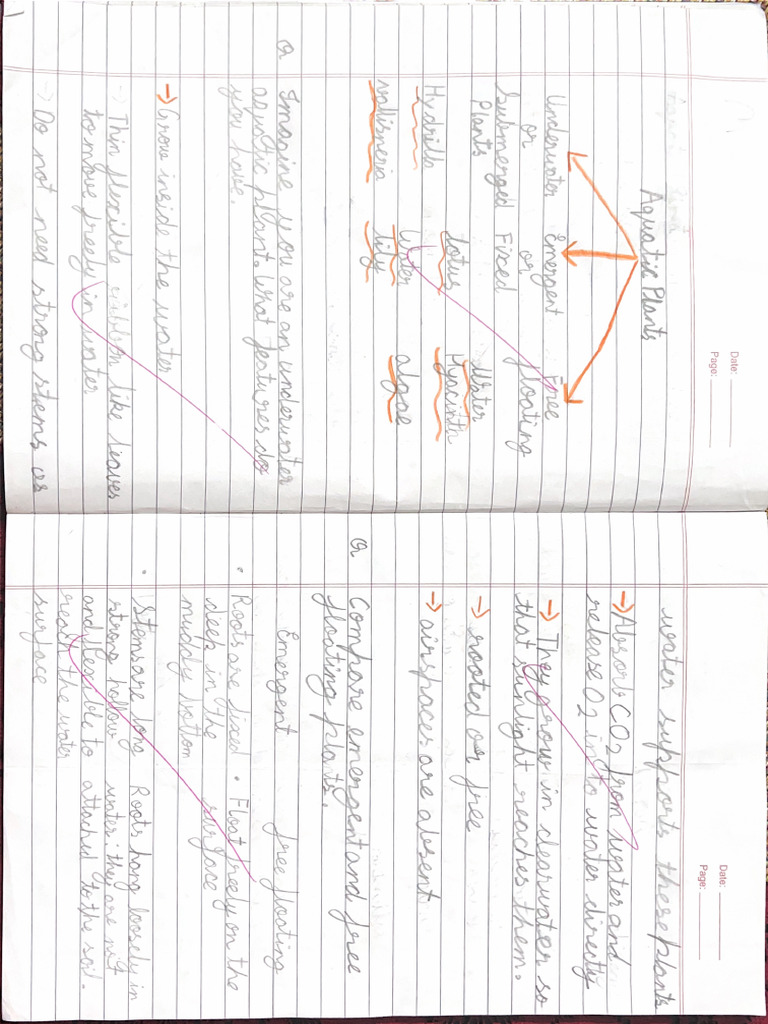 Date:
Page:
Aquatic Plants
Underwater or Submerged Plants
Emergent or Fixed
Free floating
Hydrilla
vallisneria
Lotus
Water lily
Water Hyacinth
algae
Q Imagine you are an underwater
aquatic plant. What features do
you have.
→ Grow inside the water
→ Thin flexible ribbon like leaves
to move freely in water
→ Do not need strong stems as
Date:
Page:
water supports these plants
→ Absorb CO2 from water and
release O2 in to water directly
→ They grow in clearwater so
that sunlight reaches them.
→ rooted or free
→ airspaces are absent
Q Compare emergent and free
floating plants.
Emergent free floating
• Roots are fixed • Float freely on the
deep in the surface
muddy bottom
• Stems are long Roots hang loosely in
strong hollow water. they are not
and flexible to attached to the soil.
reach the water
surface